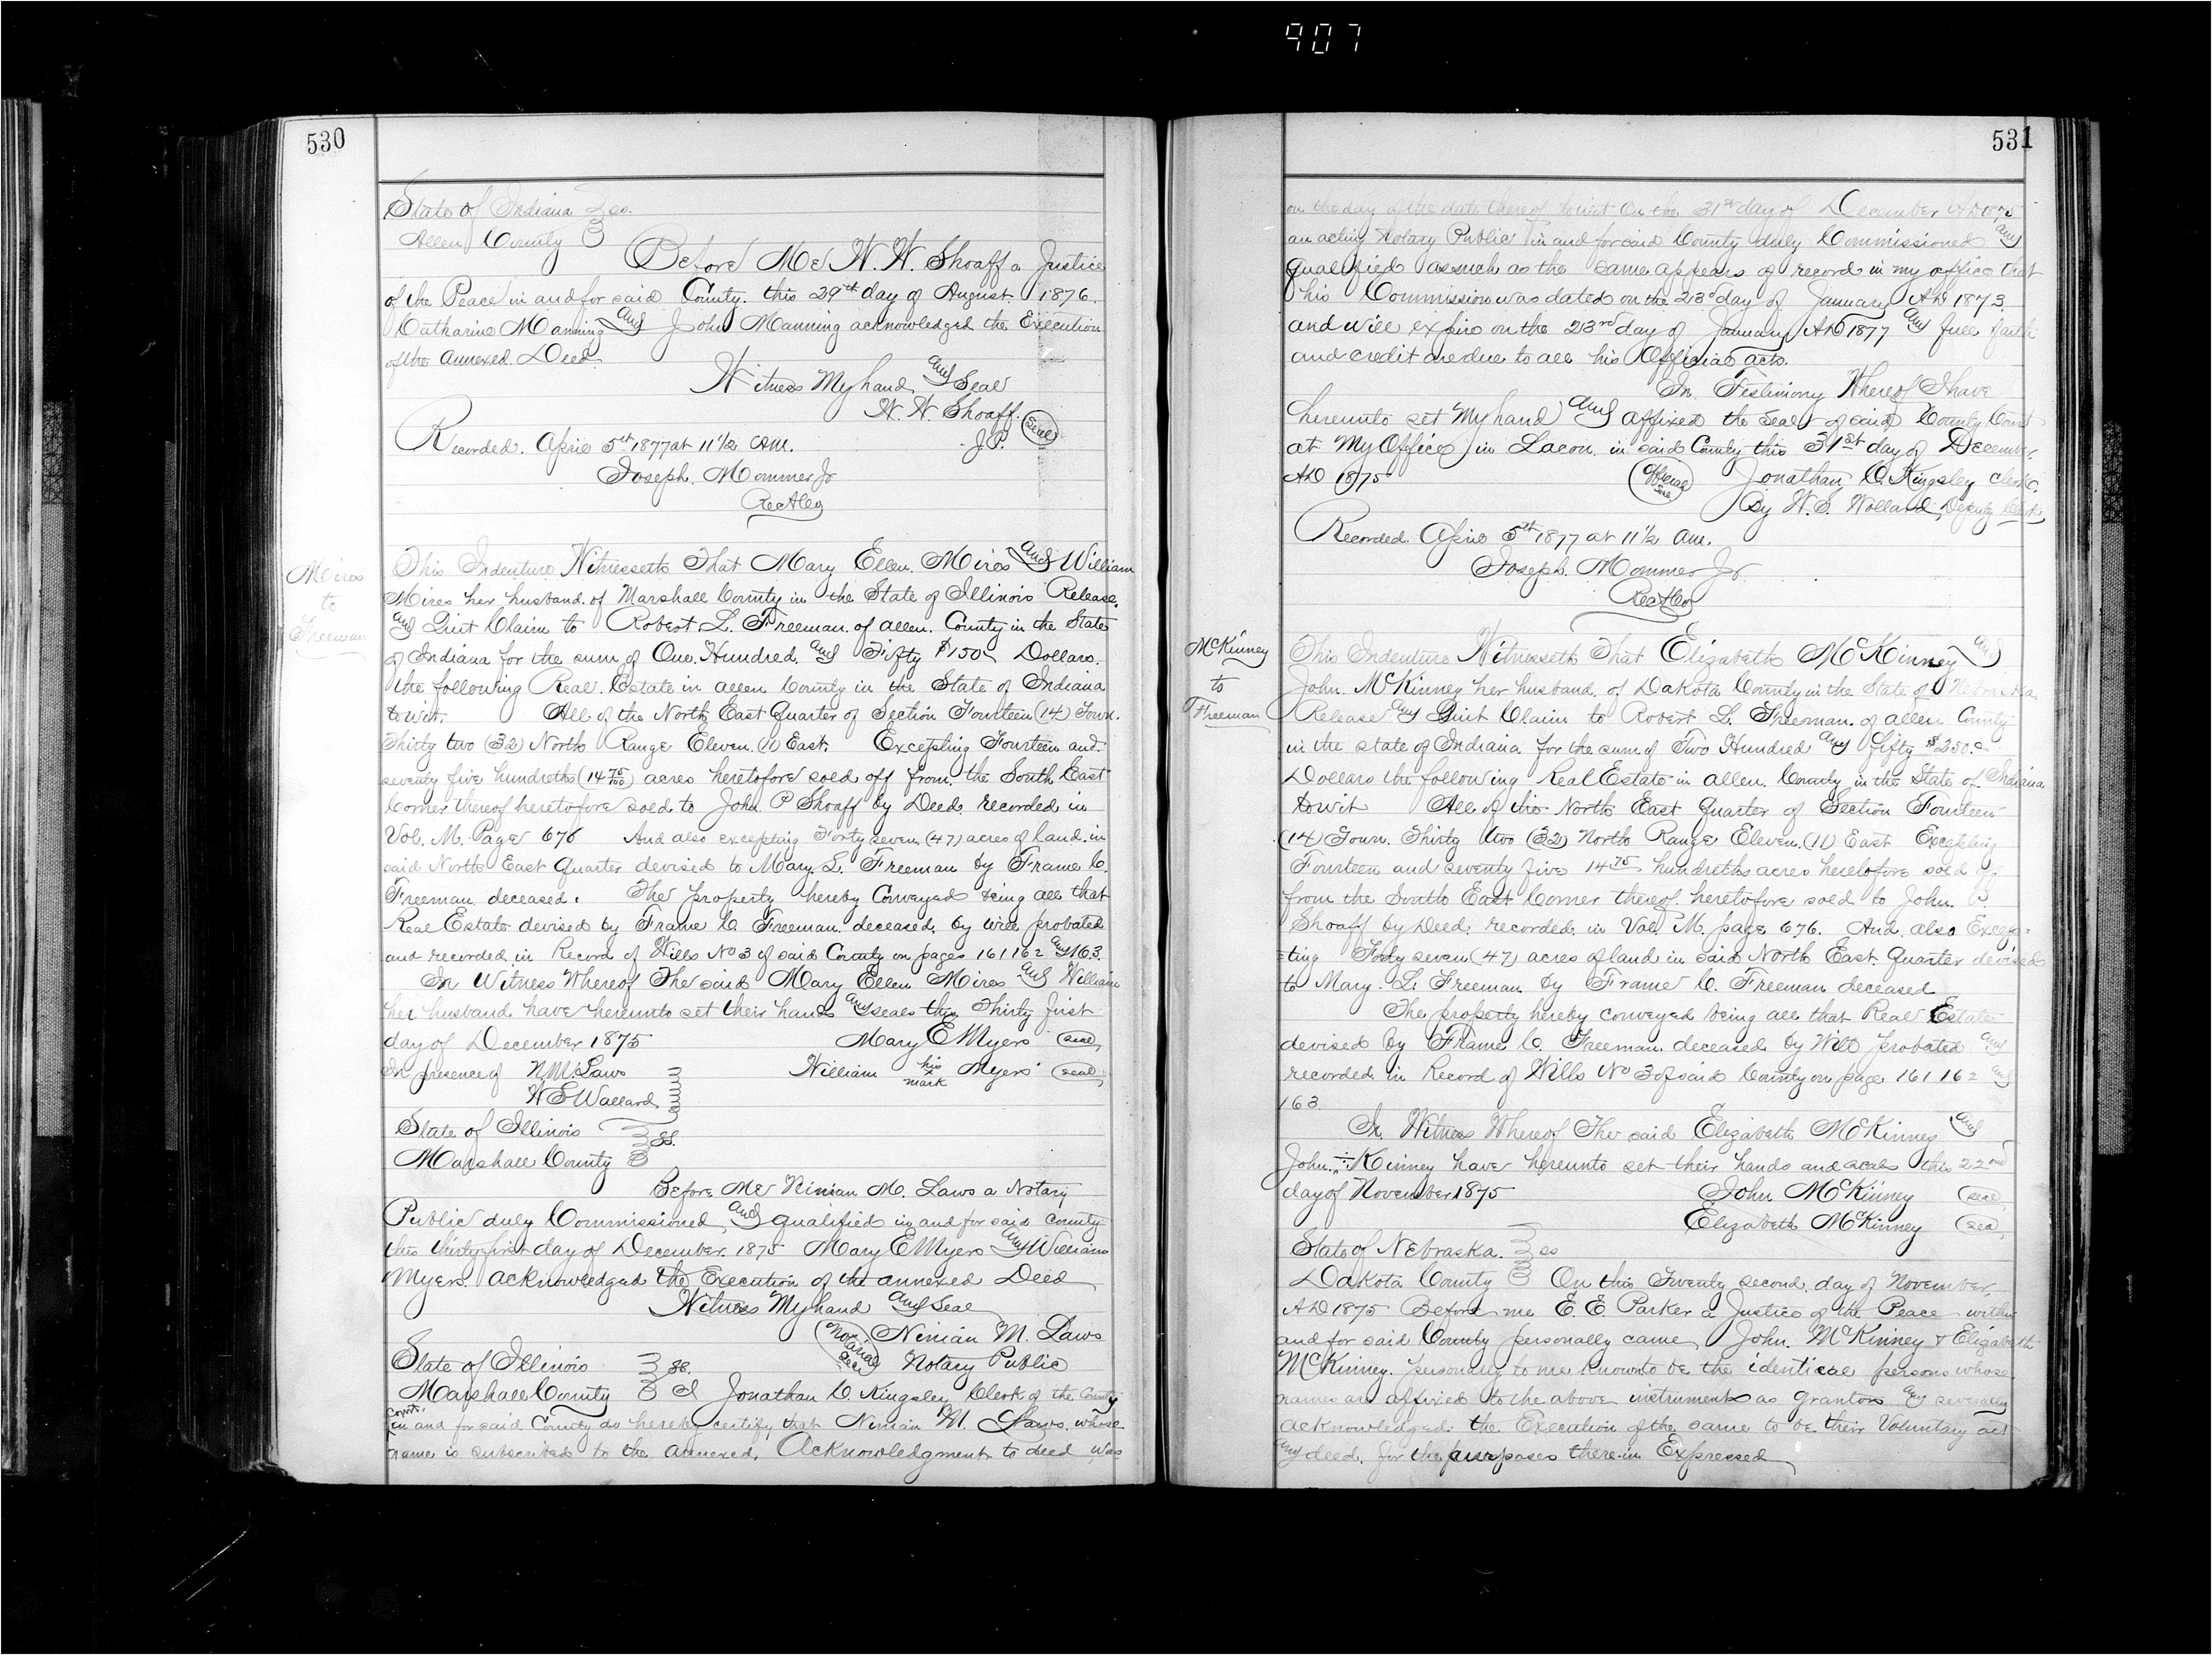 907
530
State of Indiana ss.
Allen County
Before Me W. W. Shoaff a Justice
of the Peace in and for said County. this 29th day of August 1876.
Catharine Manning and John Manning acknowledged the Execution
of the Annexed Deed.
Witness My hand and Seal
W. W. Shoaff. (Seal)
J.P.
Recorded. April 5th 1877 at 11 1/2 am.
Joseph. Mommer Jr
Rec
Mires
to
Freeman
This Indenture Witnesseth That Mary Ellen. Mires and William
Mires her husband. of Marshall County in the State of Illinois Release.
and Quit Claim to Robert L. Freeman. of allen. County in the State
of Indiana for the sum of One. Hundred. and Fifty $150 Dollars.
the following Real. Estate in allen County in the State of Indiana
to wit. All of the North East Quarter of Section Fourteen (14) Town.
Thirty two (32) North Range Eleven. (11) East. Excepting Fourteen and.
seventy five hundreths (14 75/100) acres heretofore sold off from. the South East
Corner thereof heretofore sold to John P Shoaff by Deed. recorded in
Vol. M. Page 676 And also excepting Forty seven (47) acres of land. in
said North East Quarter devised to Mary. L. Freeman by Frame C.
Freeman, deceased. The property hereby Conveyed being all that
Real Estate devised by Frame C Freeman. deceased. by will probated
and recorded in Record of Wills No 3 of said County on pages 161 162 and 163.
In Witness Whereof The said Mary Ellen Mires and William
her husband have hereunto set their hands and seals this Thirty first
day of December 1875 Mary E Myers (seal)
In presence of N. M. Laws William his x mark Myers (seal)
W S Wallard
State of Illinois ss.
Marshall County
Before Me Ninian M. Laws a Notary
Public duly Commissioned and qualified in and for said County
this thirty first day of December. 1875 Mary E Myers and William
Myers. acknowledged the Execution of the annexed Deed
Witness My hand and Seal
(Notarial Seal) Ninian M. Laws
Notary Public
State of Illinois ss.
Marshall County I Jonathan C. Kingsley Clerk of the County
Court.
in and for said County do hereby certify, that Ninian M. Laws, whose
name is subscribed to the annexed. Acknowledgment to deed was
531
on the day of the date thereof to wit On the 31st day of December AD 1875
an acting Notary Public in and for said County duly Commissioned and
Qualified as such as the same appears of record in my office that
his Commission was dated on the 23d day of January AD 1873
and will expire on the 23rd day of January AD 1877 and full faith
and credit are due to all his Official acts.
In Testimony Whereof I have
hereunto set My hand and affixed the Seal of said County Court
at My Office in Lacon in said County this 31st day of December
AD 1875 (Official Seal) Jonathan C. Kingsley clerk.
By W. S. Wallard, Deputy Clerk
Recorded. April 5th 1877 at 11 1/2 am.
Joseph. Mommer Jr
Rec
McKinney
to
Freeman
This Indenture Witnesseth That Elizabeth McKinney and
John. McKinney her husband, of Dakota County in the State of Nebraska
Release and Quit Claim to Robert L. Freeman. of allen County
in the state of Indiana for the sum of Two Hundred and fifty $250.
Dollars the following Real Estate in allen. County in the State of Indiana
to wit All of the North East Quarter of Section Fourteen
(14) Town. Thirty two (32) North Range Eleven. (11) East Excepting
Fourteen and seventy five 14 75 hundreths acres heretofore sold off
from the South East Corner thereof. heretofore sold to John. P.
Shoaff by Deed. recorded. in Vol. M. page 676. And. also Excep-
ting Forty seven (47) acres of land in said North East. Quarter devised
to Mary. L. Freeman by Frame C. Freeman deceased
The property hereby conveyed being all that Real Estate
devised by Frame C. Freeman. deceased by Will probated and
recorded. in Record of Wills No 3 of said County on page 161 162 and
163.
In Witness Whereof The said Elizabeth McKinney and
John. McKinney have hereunto set their hands and seals this 22nd
day of November 1875 John McKinney (seal)
Elizabeth McKinney (seal)
State of Nebraska. ss
Dakota County On this Twenty second day of November.
AD 1875 Before me E. E. Parker a Justice of the Peace within
and for said County personally came John. McKinney & Elizabeth
McKinney. personally to me known to be the identical persons whose
names are affixed to the above instrument as grantors and severally
acknowledged. the Execution of the same to be their Voluntary act
and deed. for the purposes therein Expressed